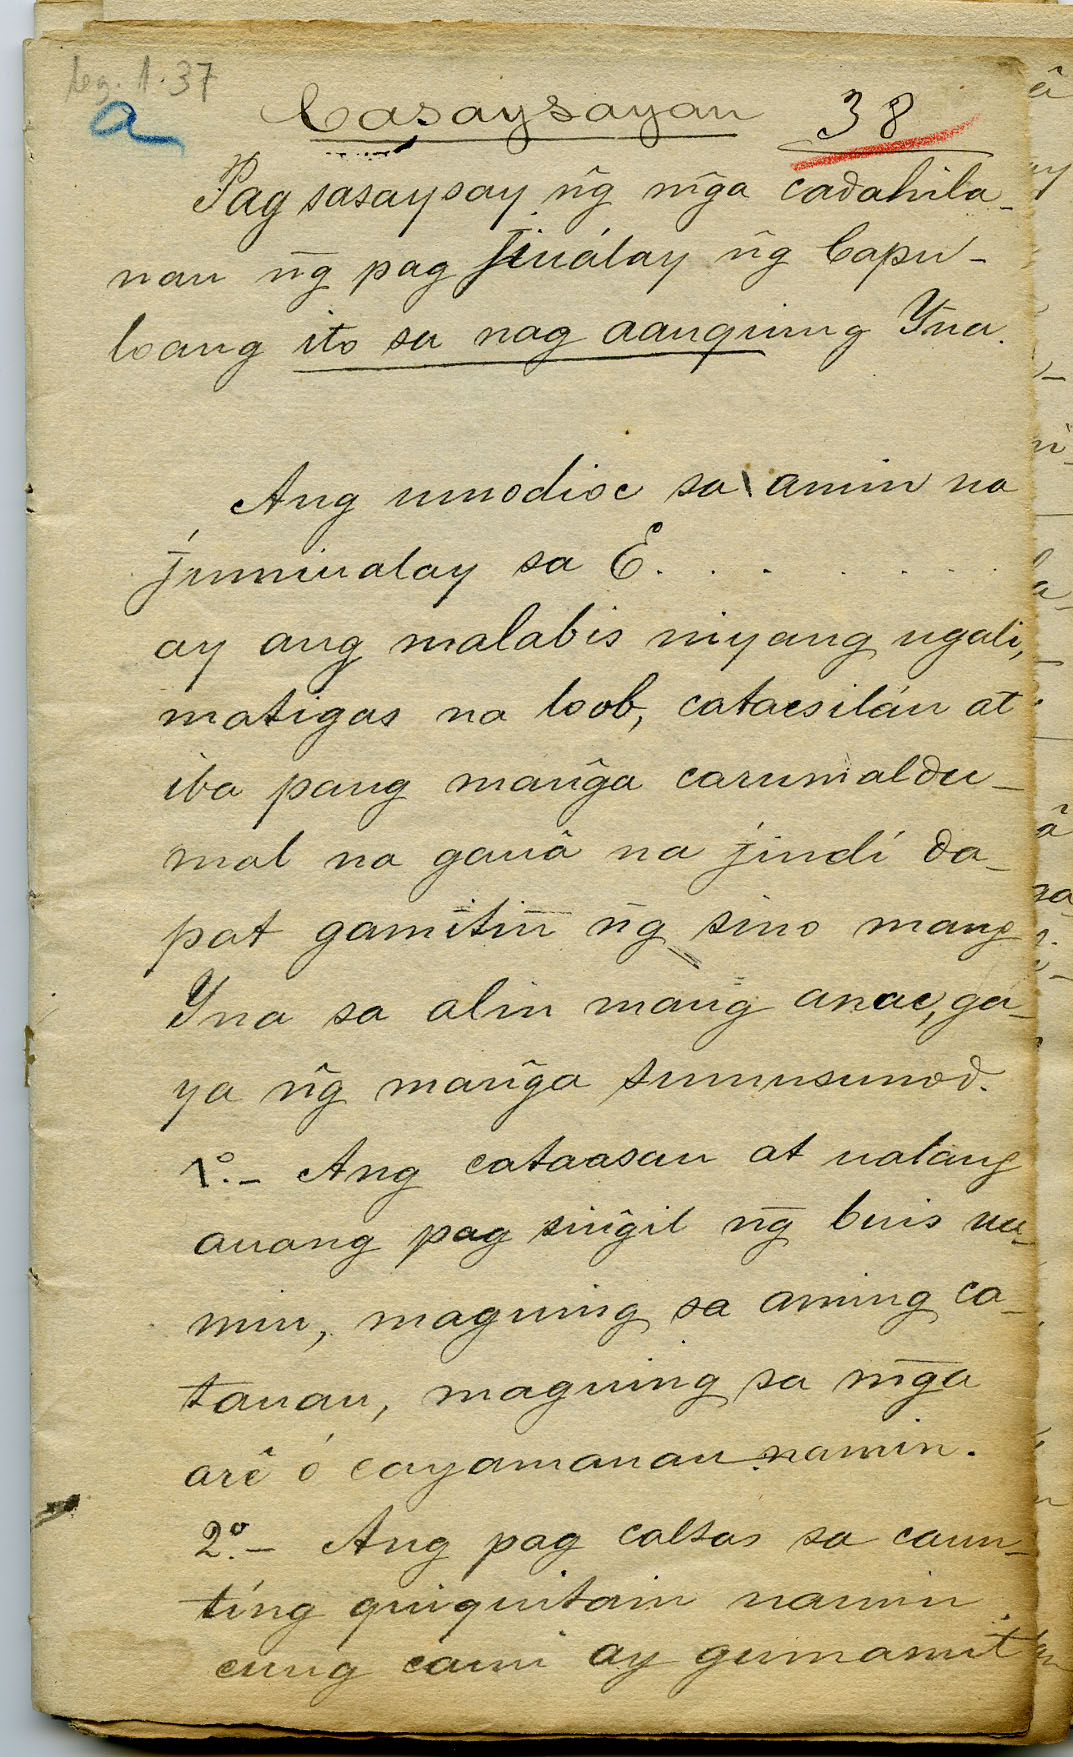 Leg. 1.37
a
Casaysayan 38
Pag sasaysay n͠g m͠ga cadahila-
nan n͠g pag jiuálay n͠g Capu-
loang ito sa nag aanquing Yna.
Ang umodioc sa amin na
jumiualay sa E. . . . . . . .
ay ang malabis niyang ugali,
matigas na loob, catacsilán at
iba pang man͠ga carumaldu-
mal na gauâ na jindí da-
pat gamitin n͠g sino mang
Yna sa alin mang anac, ga-
ya n͠g man͠ga sumusunod.
1.º- Ang cataasan at ualang
auang pag sin͠gil n͠g buis na-
min, maguing sa aming ca-
tauan, maguing sa m͠ga
arê ó cayamanan namin.
2.º- Ang pag caltas sa caun-
tíng quiquitain namin
cung cami ay gumamit